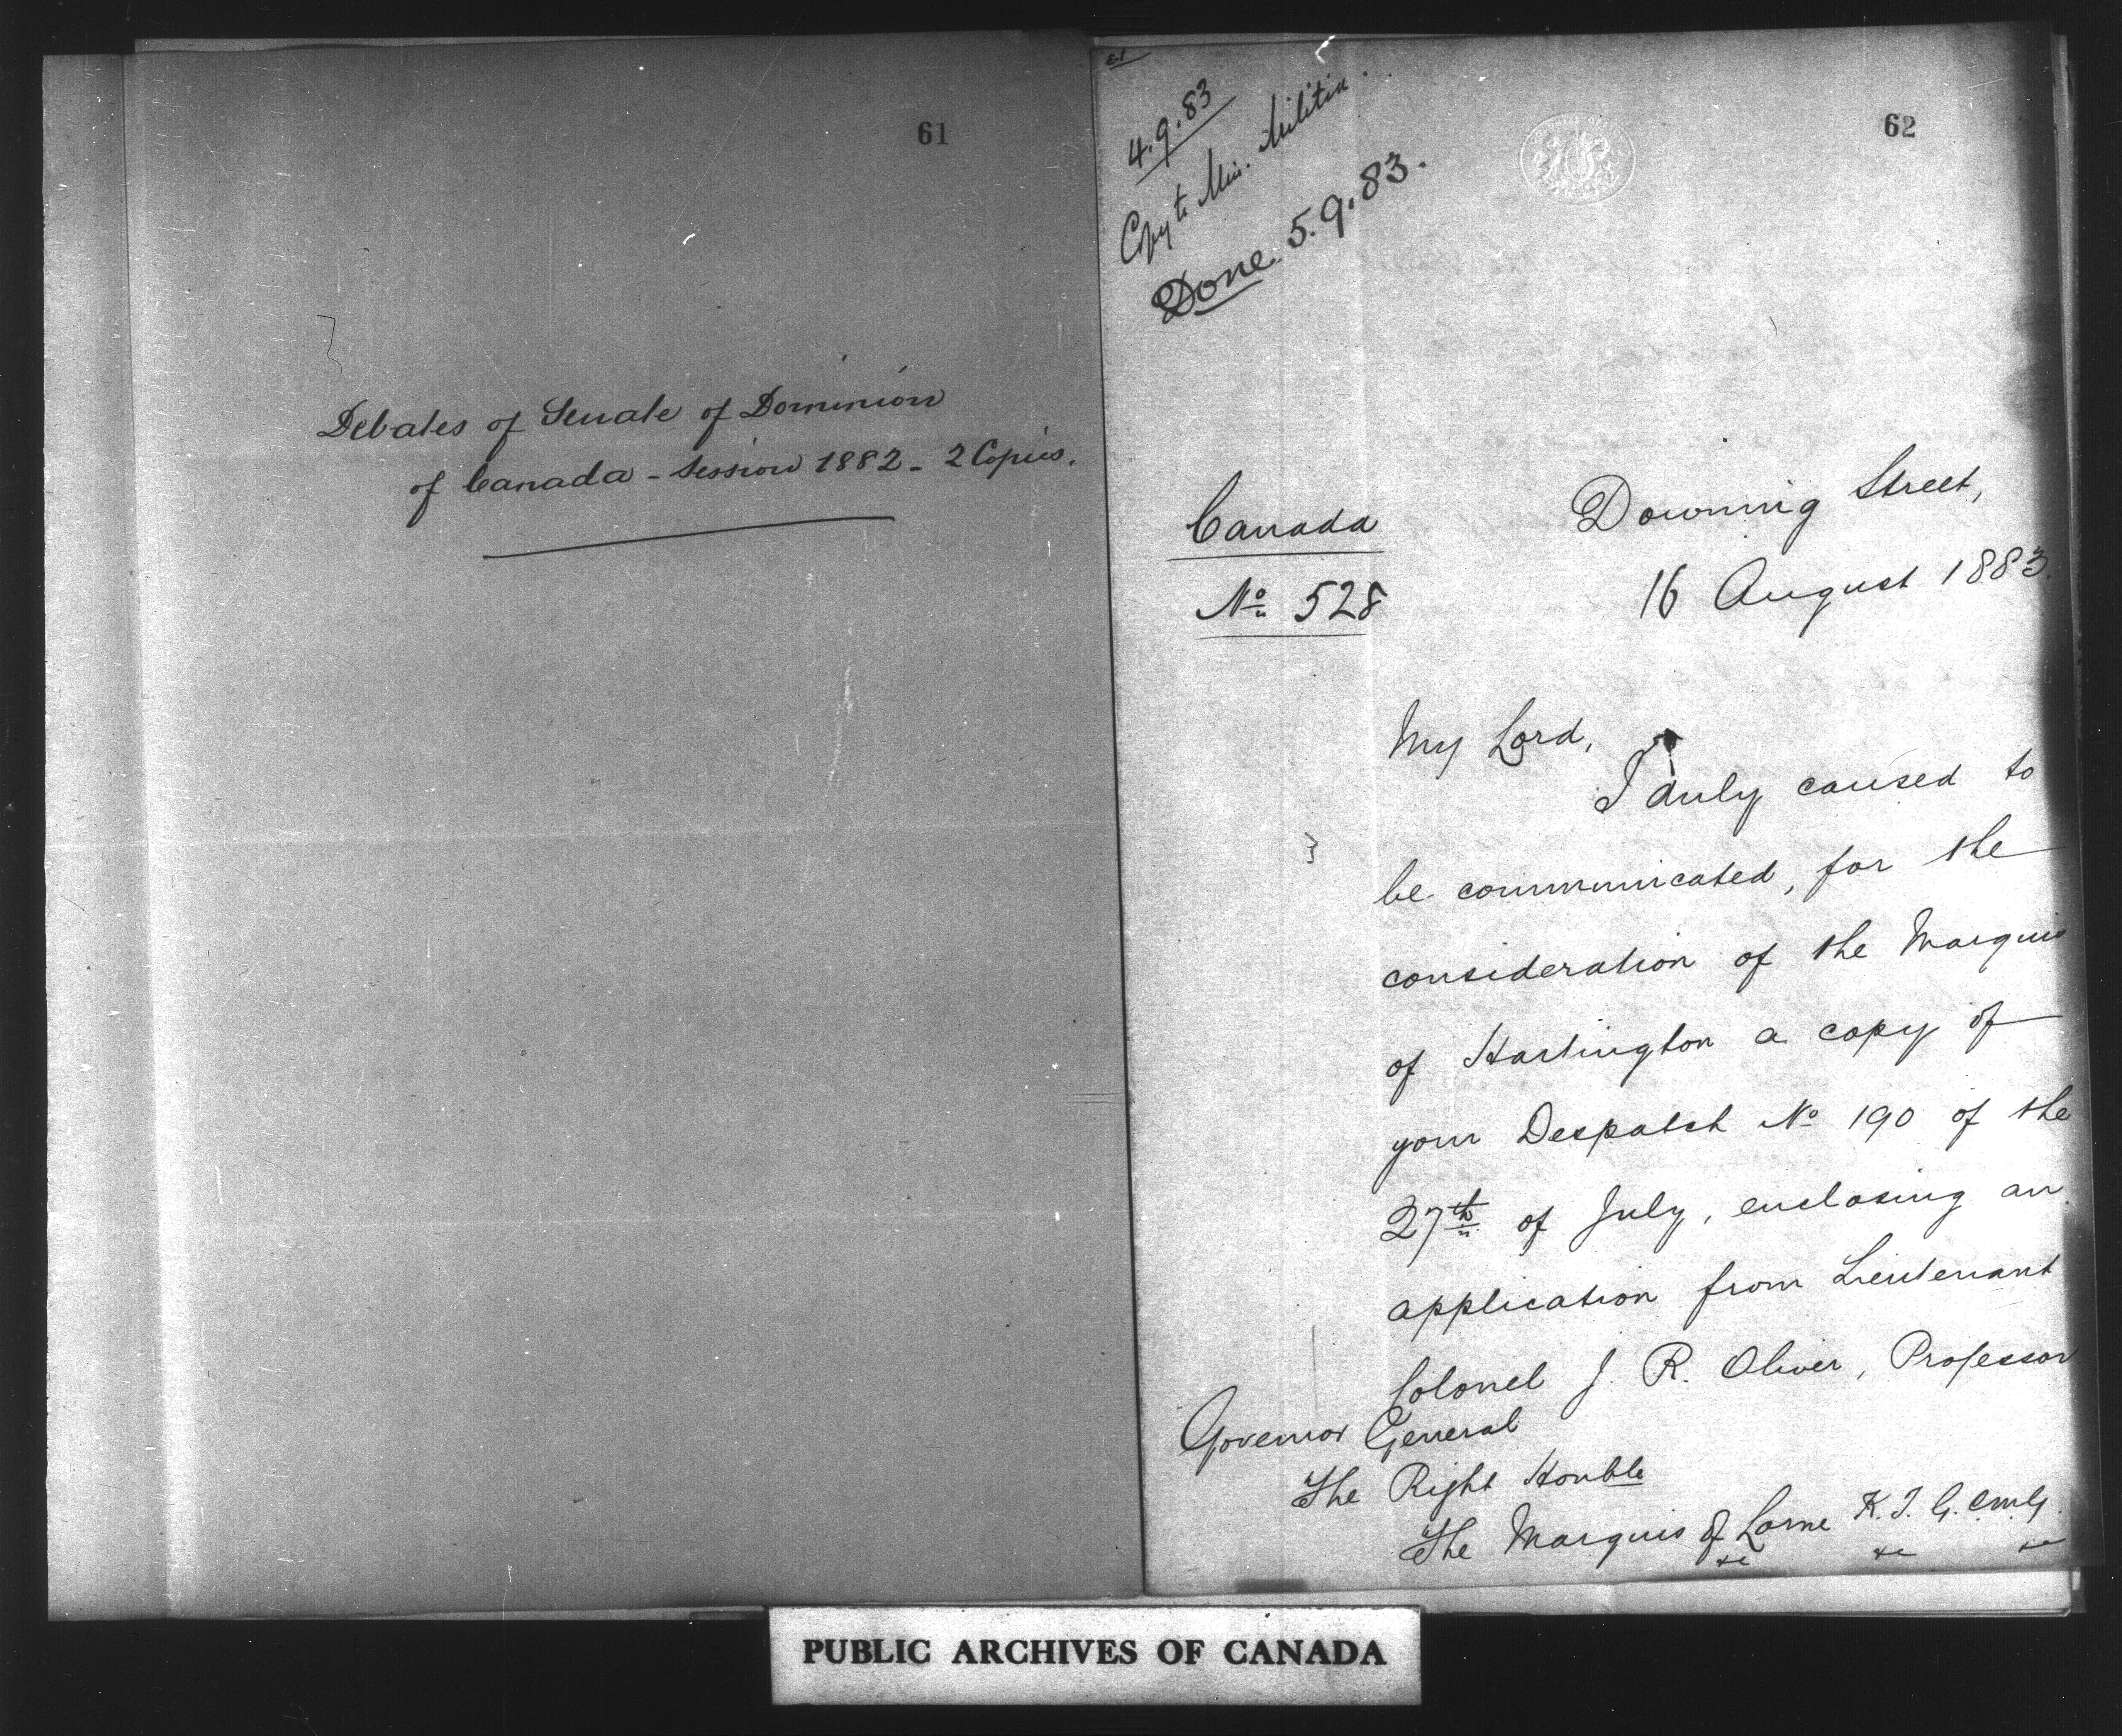 61
Debates of Senate of Dominion
of Canada - Session 1882 - 2 Copies.
62
4.9.83
Copy to Min. Militia.
Done. 5.9.83.
Canada
No 528
Downing Street,
16 August 1883.
My Lord,
I duly caused to
be communicated, for the
consideration of the Marquis
of Hartington a copy of
your Despatch No 190 of the
27th of July, enclosing an
application from Lieutenant
Colonel J. R. Oliver, Professor
Governor General
The Right Honble
The Marquis of Lorne K.T. G.C.M.G.
&c &c &c
PUBLIC ARCHIVES OF CANADA